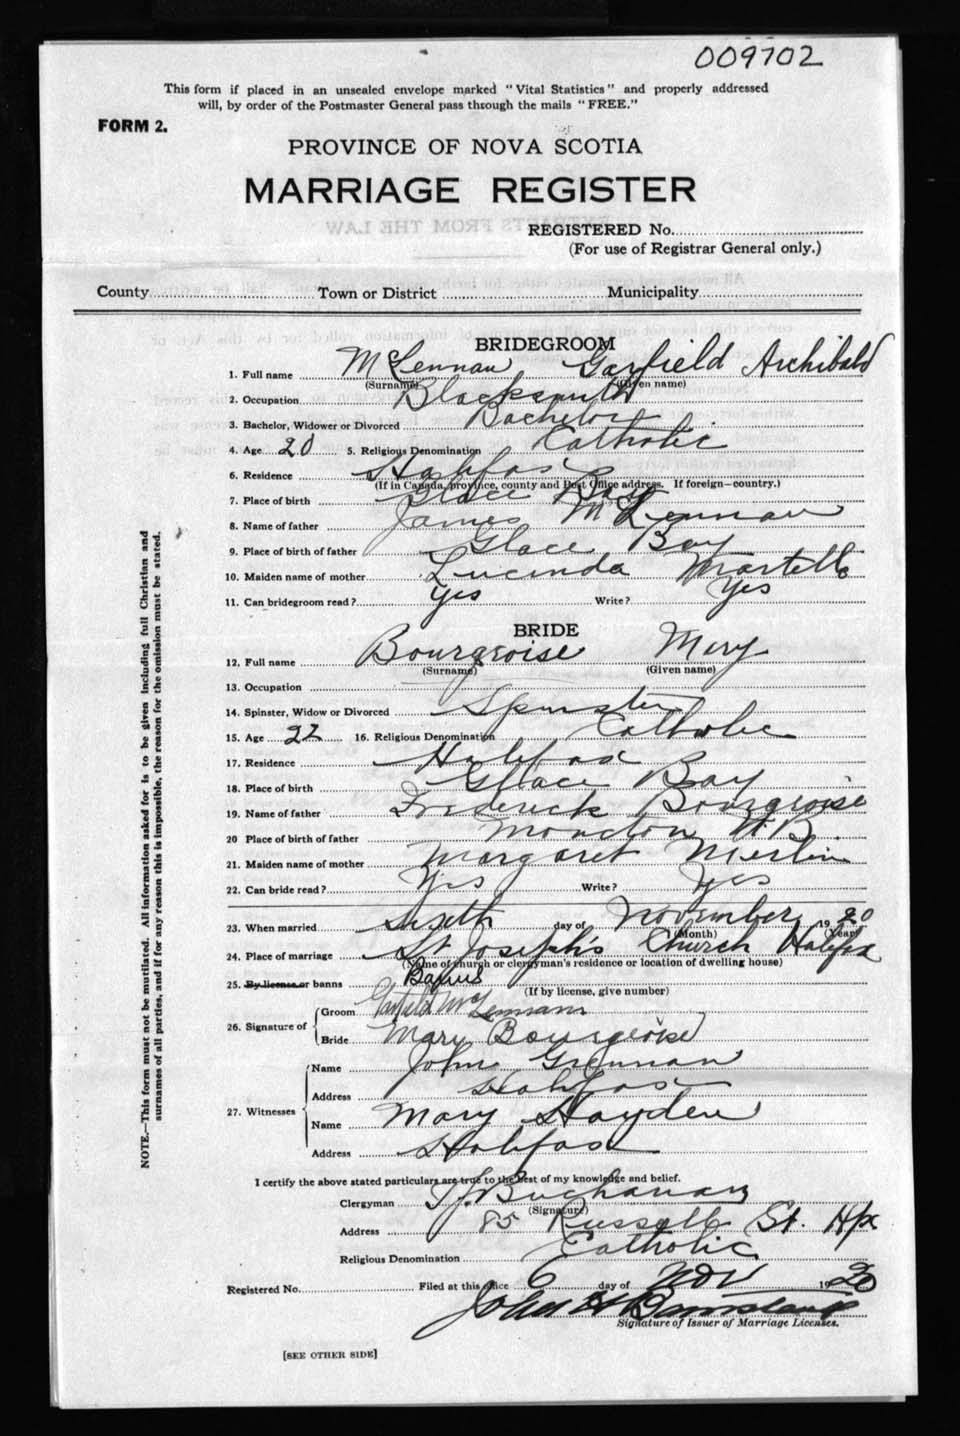 009702
This form if placed in an unsealed envelope marked "Vital Statistics" and properly addressed
will, by order of the Postmaster General pass through the mails "FREE."
FORM 2.
PROVINCE OF NOVA SCOTIA
MARRIAGE REGISTER
REGISTERED No.
(For use of Registrar General only.)
County Town or District Municipality
BRIDEGROOM
1. Full name McLennan Garfield Archibald
(Surname) (Given name)
2. Occupation Blacksmith
3. Bachelor, Widower or Divorced Bachelor
4. Age 20 5. Religious Denomination Catholic
6. Residence Halifax
(If in Canada, province, county and Post Office address. If foreign—country.)
7. Place of birth Glace Bay
8. Name of father James McLennan
9. Place of birth of father Glace Bay
10. Maiden name of mother Lucinda Martell
11. Can bridegroom read? yes Write? yes
BRIDE
12. Full name Bourgeoise Mary
(Surname) (Given name)
13. Occupation
14. Spinster, Widow or Divorced Spinster
15. Age 22 16. Religious Denomination Catholic
17. Residence Halifax
18. Place of birth Glace Bay
19. Name of father Frederick Bourgeoise
20 Place of birth of father Moncton N.B.
21. Maiden name of mother Margaret
22. Can bride read? Yes Write? yes
23. When married Sixth day of November 1920
(Month) (Year)
24. Place of marriage St Joseph's Church Halifax
(Name of church or clergyman's residence or location of dwelling house)
25. By license or banns Banns
(If by license, give number)
26. Signature of Groom Garfield McLennan
Bride Mary Bourgeoise
27. Witnesses Name John Grennan
Address Halifax
Name Mary Hayden
Address Halifax
I certify the above stated particulars are true to the best of my knowledge and belief.
Clergyman Buchanan
(Signature)
Address 85 Russell St. Hfx
Religious Denomination Catholic
Registered No. Filed at this office 6 day of Nov 1920
John H
Signature of Issuer of Marriage Licenses.
[SEE OTHER SIDE]
NOTE.—This form must not be mutilated. All information asked for is to be given including full Christian and
surnames of all parties, and if for any reason this is impossible, the reason for the omission must be stated.